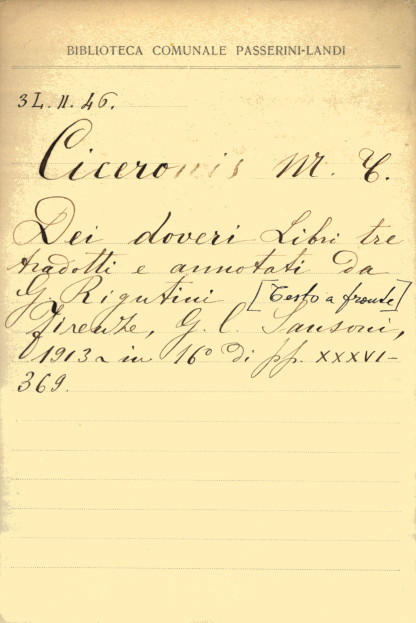 BIBLIOTECA COMUNALE PASSERINI-LANDI
3L.II.46.
Ciceronis M. T.
Dei doveri Libri tre
tradotti e annotati da
G. Rigutini [Testo a fronte]
Firenze, G. C. Sansoni,
1913 in 16° di pp. XXXVI-
369.